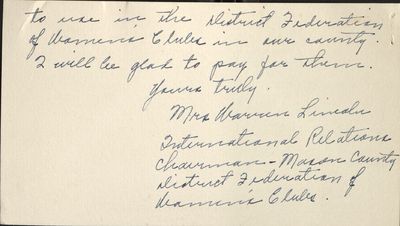 to use in the District Federation
of Women's Clubs in our county.
I will be glad to pay for them.
Yours truly.
Mrs Warren Lincoln
International Relations
Chairman - Mason County
District Federation of
Women's Clubs.